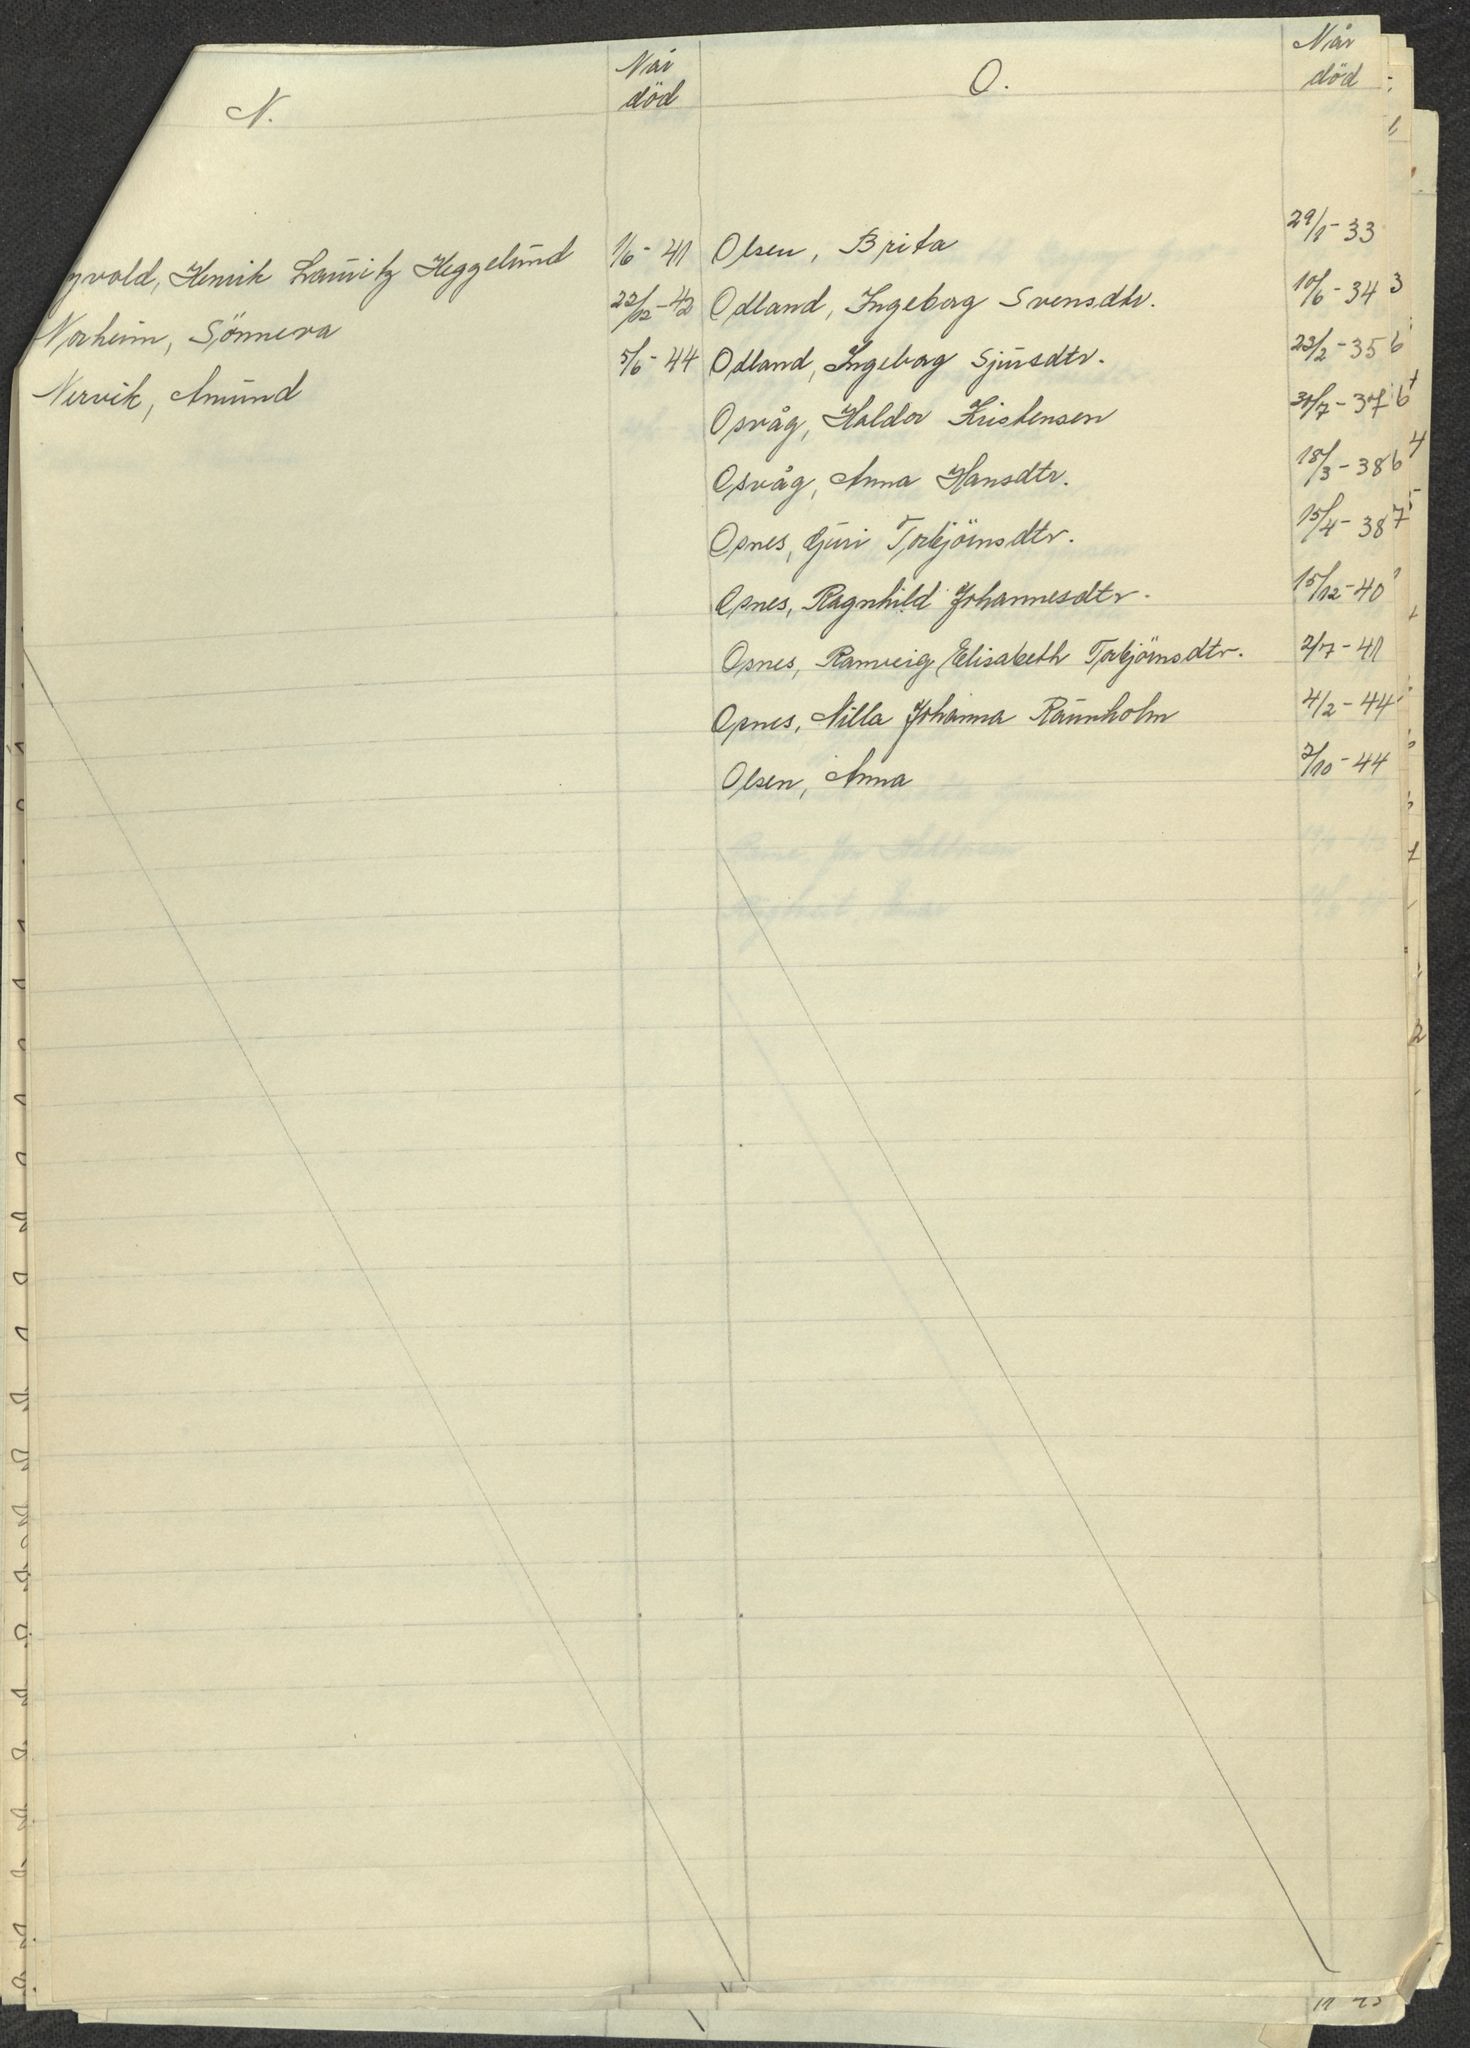 N.
Når död
O.
Når död
yvold, Henrik Lauritz Heggelund 1/6-41
Norheim, Sönneva 22/12-42
Nervik, Amund 5/6-44
Olsen, Brita 29/1-33
Odland, Ingeborg Svensdtr. 10/6-34
Odland, Ingeborg Sjursdtr. 23/2-35
Osvåg, Haldor Kristensen -37
Osvåg, Anna Hansdtr. 18/3-38
Osnes, Guri Torbjörnsdtr. 15/4-38
Osnes, Ragnhild Johannesdtr. 15/12-40
Osnes, Ranveig Elisabeth Torbjörnsdtr. 2/7-41
Osnes, Nilla Johanna Raunholm 4/2-44
Olsen, Anna 2/10-44